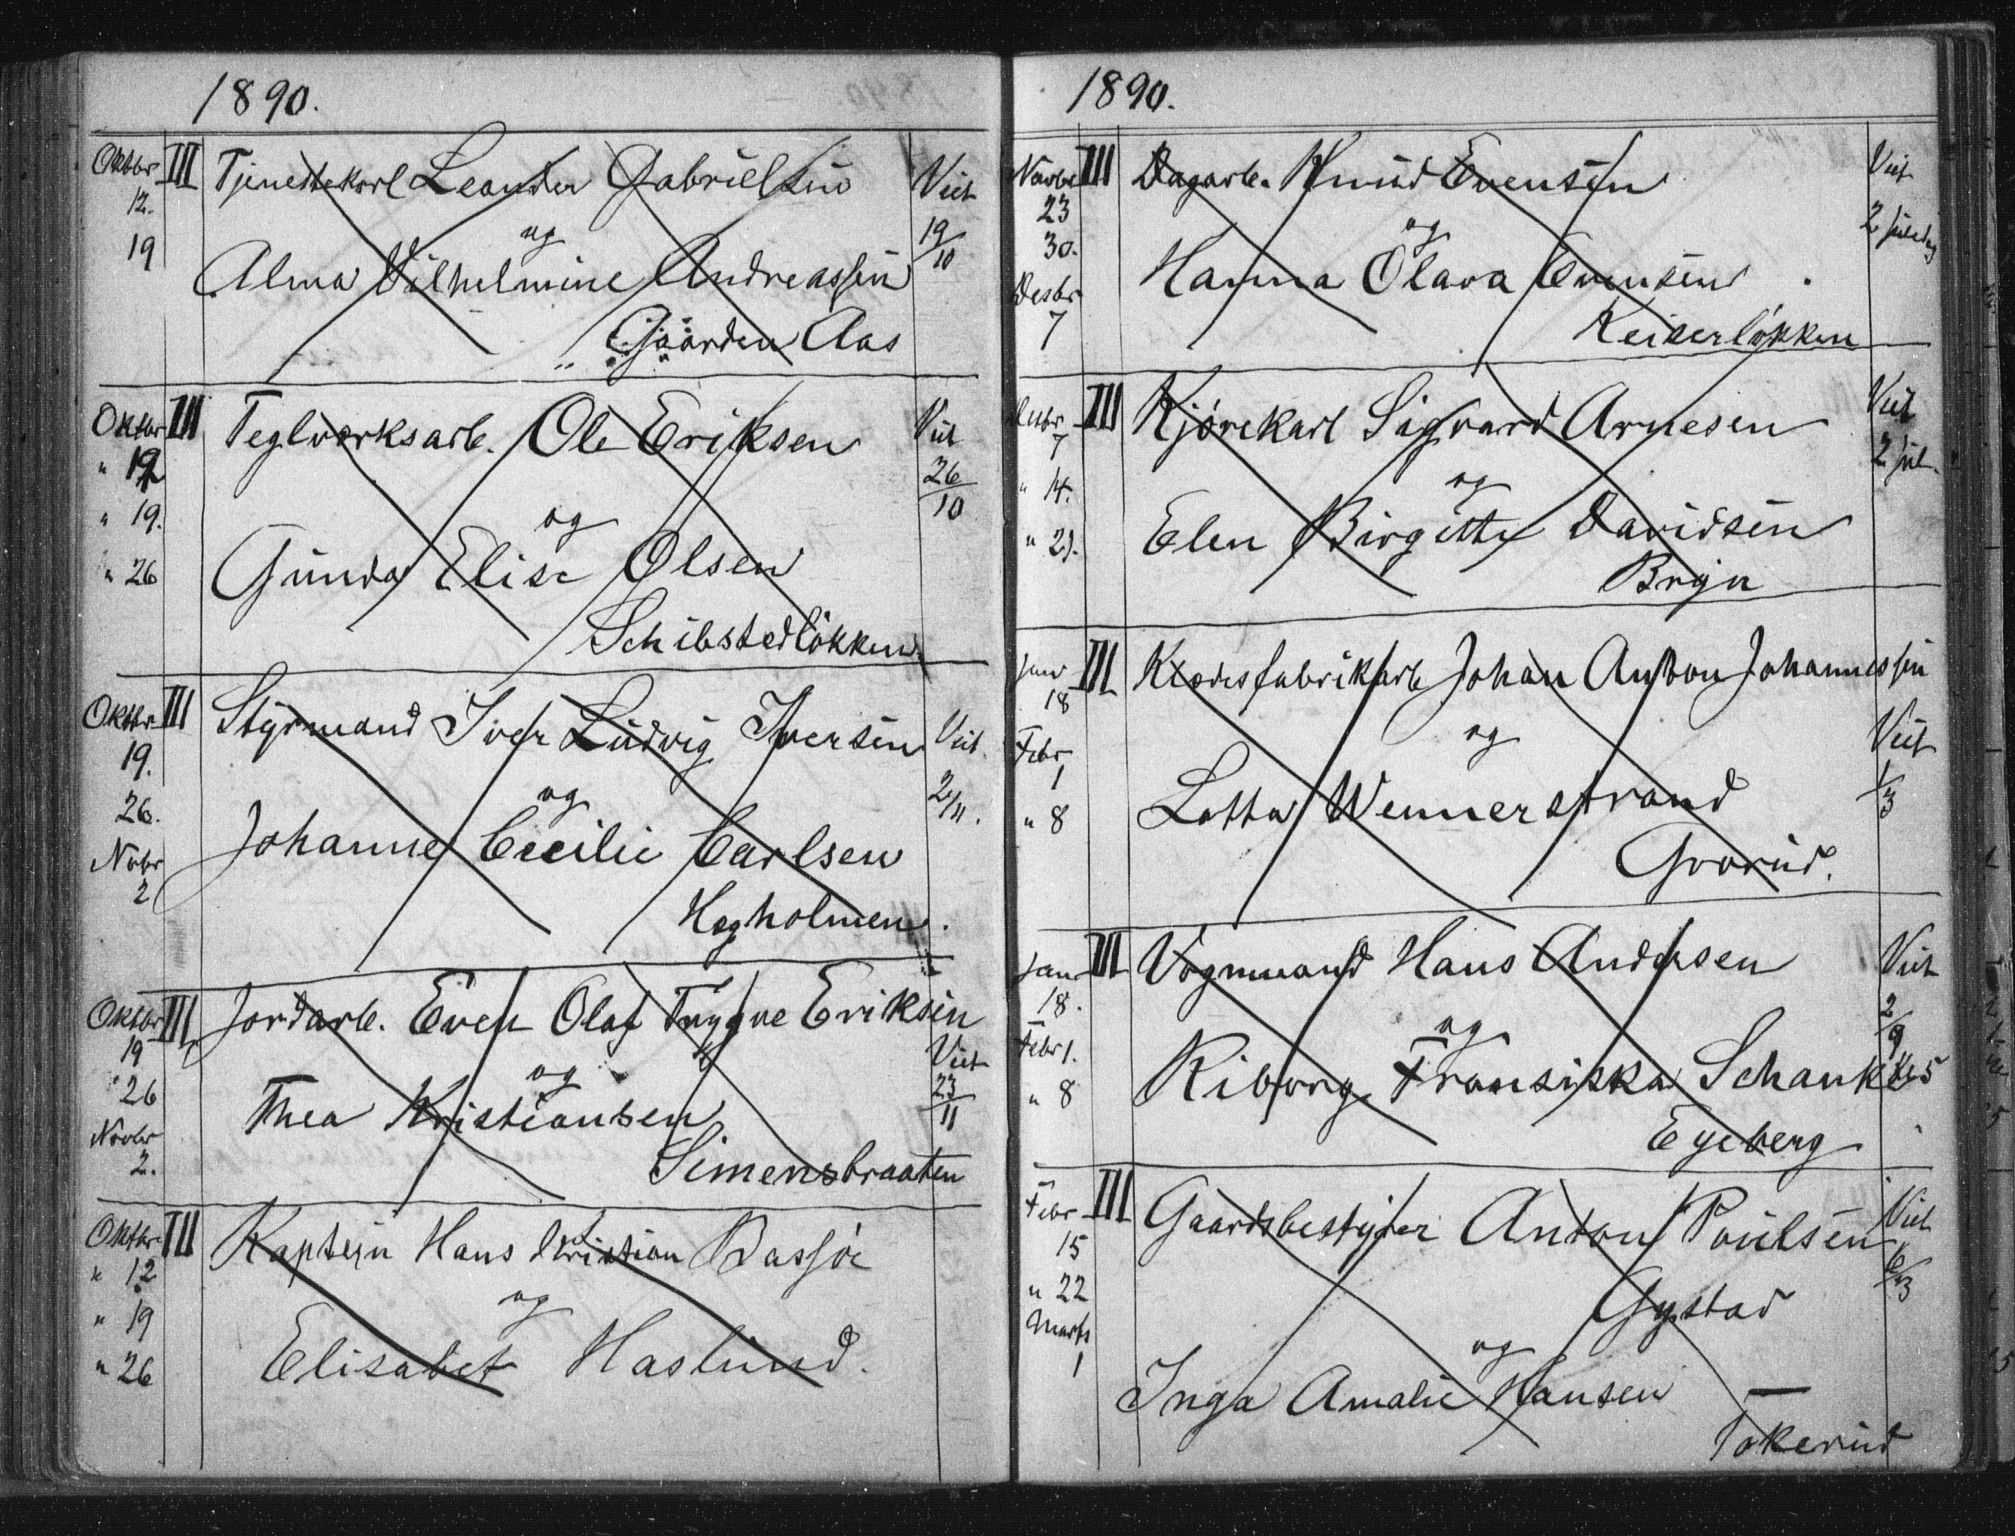 1890.
Oktbr III Tjenestekarl Leander Gabrielsen Viet
12. og 19/10
19 Alma Vilhelmine Andreassen
Gaarden Aas
Oktbr III Teglværksarb. Ole Eriksen Viet
" 12 26/10
" 19. og
" 26 Gunda Elise Olsen
Schibstedløkken
Oktbr III Styrmand Iver Ludvig Iversen Viet
19. og 2/11.
26. Johanne Cecilie Carlsen
Novbr
2 Hegholmen.
Oktbr III Jordarb. Even Olaf Trygve Eriksen
19 og Viet
26 Thea Kristiansen 23/11
Novbr
2. Simensbraaten
Oktbr III Kaptejn Hans Kristian Bassøe
" 12 og
" 19
" 26 Elisabet Haslund.
1890.
Novbr III Dagarb. Knud Evensen Viet
23 og 2 juledag
30. Hanna Olava Evensen
Desbr
7 Keiserløkken
Desbr III Kjørekarl Sigvard Arnesen Viet
7 2 jul.
" 14. og
" 21. Elen Birgitte Davidsen
Bryn
Jan III Klædesfabrikarb Johan Anton Johannessen
18 og Viet
Febr
1 1/3
" 8 Lotta Wennerstrand
Grorud.
Jan III Vognmand Hans Andersen Viet
18. og 2/9
Febr 1.
" 8 Riborg Fransiska Schanke
Egeberg
Febr III Gaardsbestyrer Anton Poulsen Viet
15 6/3
" 22 Gystad
Marts og
1 Inga Amalie Hansen —
Tokerud